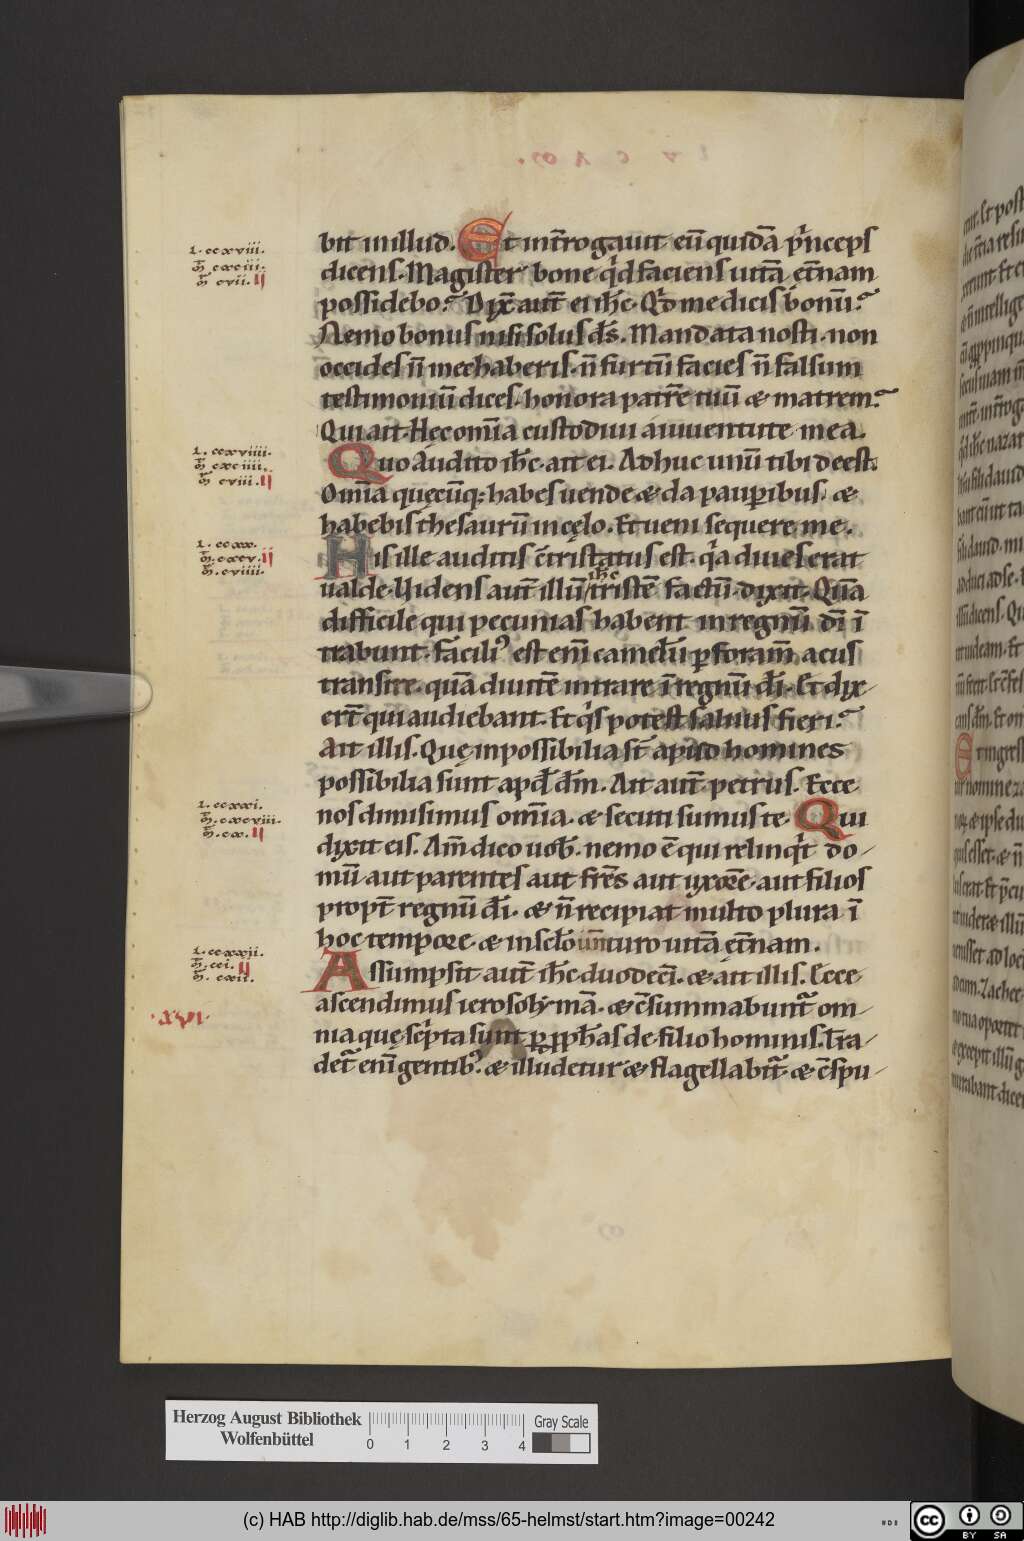 bit in illud. Et int̄rogauit eū quidā p̄nceps
dicens. Magister bone qⁱd faciens uitā et̄nam
possidebo? Dix̄ aut̄ ei ih̄c. Qⁱd me dicis bonū?
Nemo bonus nisi solus d̄s. Mandata nosti. non
occides n̄ mechaberis. n̄ furtū facies n̄ falsum
testimoniū dices. honora patrē tuū & matrem.
Qui ait. Hęc om̄ia custodiui a iuuentute mea.
Quo audito ih̄c. ait ei. Adhuc unū tibi deest.
Om̄ia quęcūq; habes uende & da pauꝑibus. &
habebis thesaurū in cęlo. Et ueni sequere me.
His ille auditis c̄tristatus est. qⁱa diues erat
ualde. Uidens aut̄ illū ih̄c tristē factū. dixit. Quā
difficile qui pecunias habent in regnū dī ī
trabunt. facili᷒ est enī camelū ꝑ foram̄ acus
transire. quā diuitē intrare ī regnū dī. Et dix
ert̄ qui audiebant. Et qⁱs potest saluus fieri?
Ait illis. Quę inpossibilia st̄ apud homines
possibilia sunt apd̄ dm̄. Ait aut̄ petrus. Ecce
nos dimisimus om̄ia. & secuti sumus te. Qui
dixit eis. Am̄ dico uob̄. nemo ē qui relinqⁱt do-
mū aut parentes aut fr̄es aut uxorē. aut filios
propt̄ regnū dī. & n̄ recipiat multo plura ī
hoc tempore. & in sclo̅ uenturo uitā et̄nam.
Assumpsit aut̄ ih̄c duodecī. & ait illis. Ecce
ascendimus ierosolymā. & c̄summabunt̄ om-
nia quę scⁱpta sunt ꝑ pph̄as de filio hominis. Tra-
det̄ enī gentib᷒. & illudetur & flagellabit̄ & c̄spu-
l. ccxviii.
m̄. cxciii.
m̄. cvii.
l. ccxviiii.
m̄. cxciiii.
m̄. cviii.
l. ccxx.
m̄. cxcv.
m̄. cviiii.
l. ccxxi.
m̄. cxcviii.
m̄. cx.
l. ccxxii.
m̄. cci.
m̄. cxii.
Herzog August Bibliothek
Wolfenbüttel
0 1 2 3 4
Gray Scale
(c) HAB http://diglib.hab.de/mss/65-helmst/start.htm?image=00242
cc BY SA